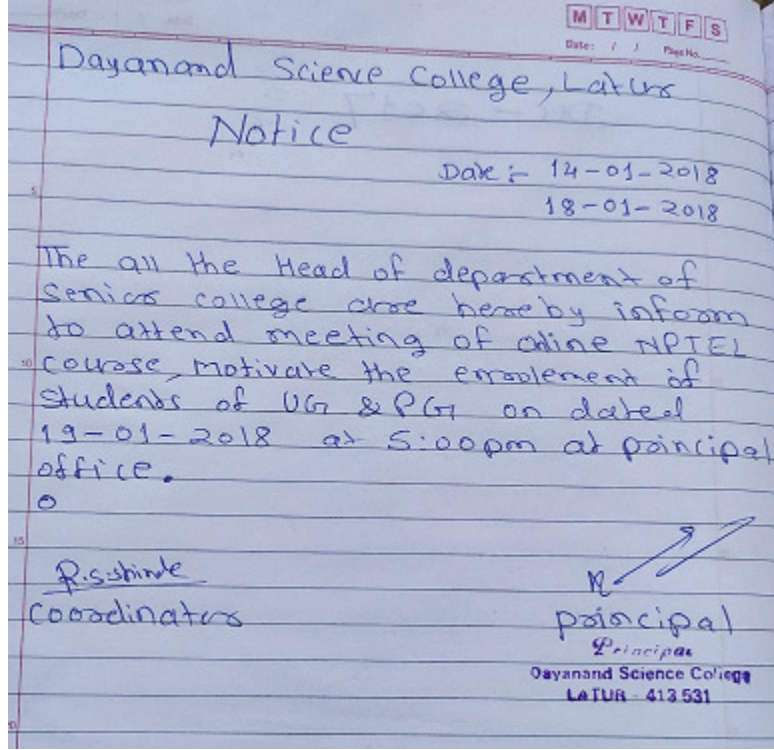 M T W T F S
Date: / / Page No.
Dayanand Science College, Latur
Notice
Date :- 14-01-2018
18-01-2018
5
The all the Head of department of
Senior college are hereby inform
to attend meeting of online NPTEL
10 course, motivate the enrolement of
students of UG & PG on dated
19-01-2018 at 5:00pm at principal
office.
15
R.S.Shinde
Coordinator
principal
Principal
Dayanand Science College
LATUR - 413 531
20